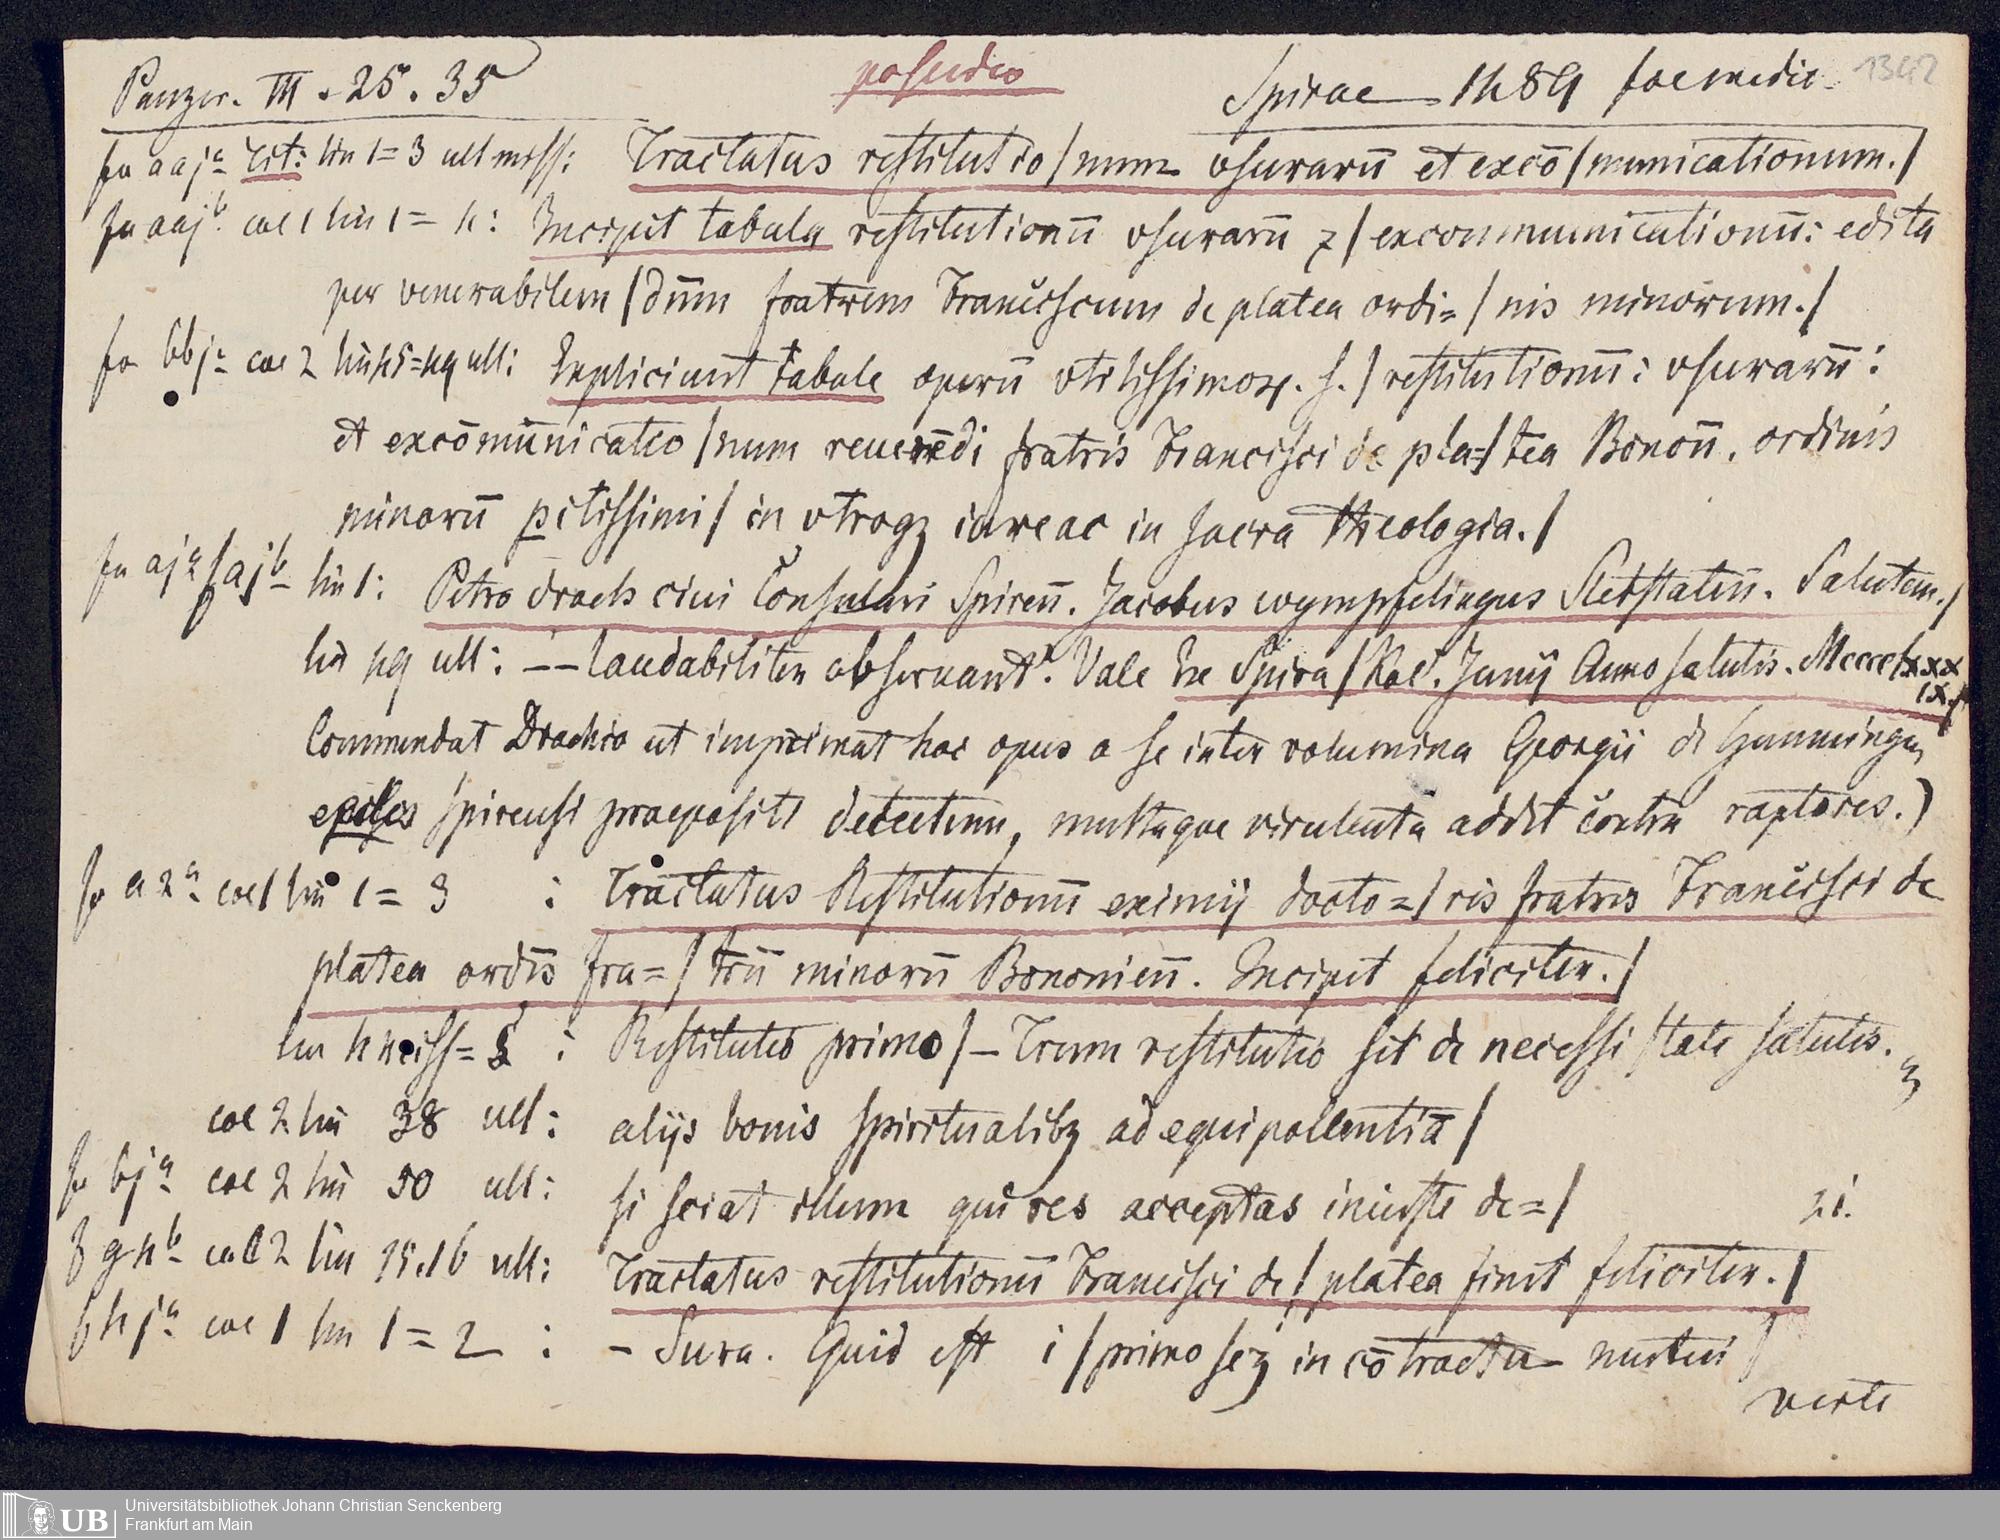 Panzer. III. 25. 35 possideo Spirae 1489 fol medie 1342
fo aaj a tit: lin 1=3 ult miss: Tractatus restitutio/num vsurarū et excō/municationum./
fo aaj b. col 1 lin 1=4: Incipit tabula restitutionū vsurarū z/excommunicationū: edita
per venerabilem/dnm fratrem Franciscum de platea ordi=/nis minorum./
fo bbj a col 2 lin 45=49 ult: Expliciunt tabule operū vtilissimoꝝ. s./restitutionū: vsurarū:
et excōmūnicatio/num reuerēdi fratris Francisci de pla=/tea Bonoñ. ordinis
minorū pitissimi/in vtroqꝫ iure ac in sacra theologia./
fo aj a/aj b lin 1: Petro drach ciui Consulari Spireñ. Jacobus wympfelingus Sletstatiñ. Salutem./
lin 49 ult: -- laudabiliter obseruant. Vale Ex Spira/Kal. Junij Anno salutis. Mcccclxxx
ix./
Commendat Drachio ut imprimat hoc opus a se inter volumina Georgii de Gemmingen
Spirensi praepositi detectum, multaque virulenta addit contra raptores.)
fo a 2 a col 1 lin 1=3 : Tractatus Restitutionū eximij docto=/ris fratris Francisci de
platea ordīs fra=/trū minorū Bononieñ. Incipit feliciter./
lin : Restitutio primo/- Trum restitutio sit de necessi/tate salutis. 3
col 2 lin 38 ult: alijs bonis spiritualibꝫ ad equipollentiā/
fo bj a col 2 lin 50 ult: si sciat illum qui res acceptas iniuste de=/ 2i.
f g 4 b col 2 lin 15.16 ult: Tractatus restitutionū Francisci de/platea finit feliciter./
f hj a col 1 lin 1=2 : - Sura. Quid est i/primo sꝫ in cōtractu mutui/
verte
Universitätsbibliothek Johann Christian Senckenberg
UB Frankfurt am Main